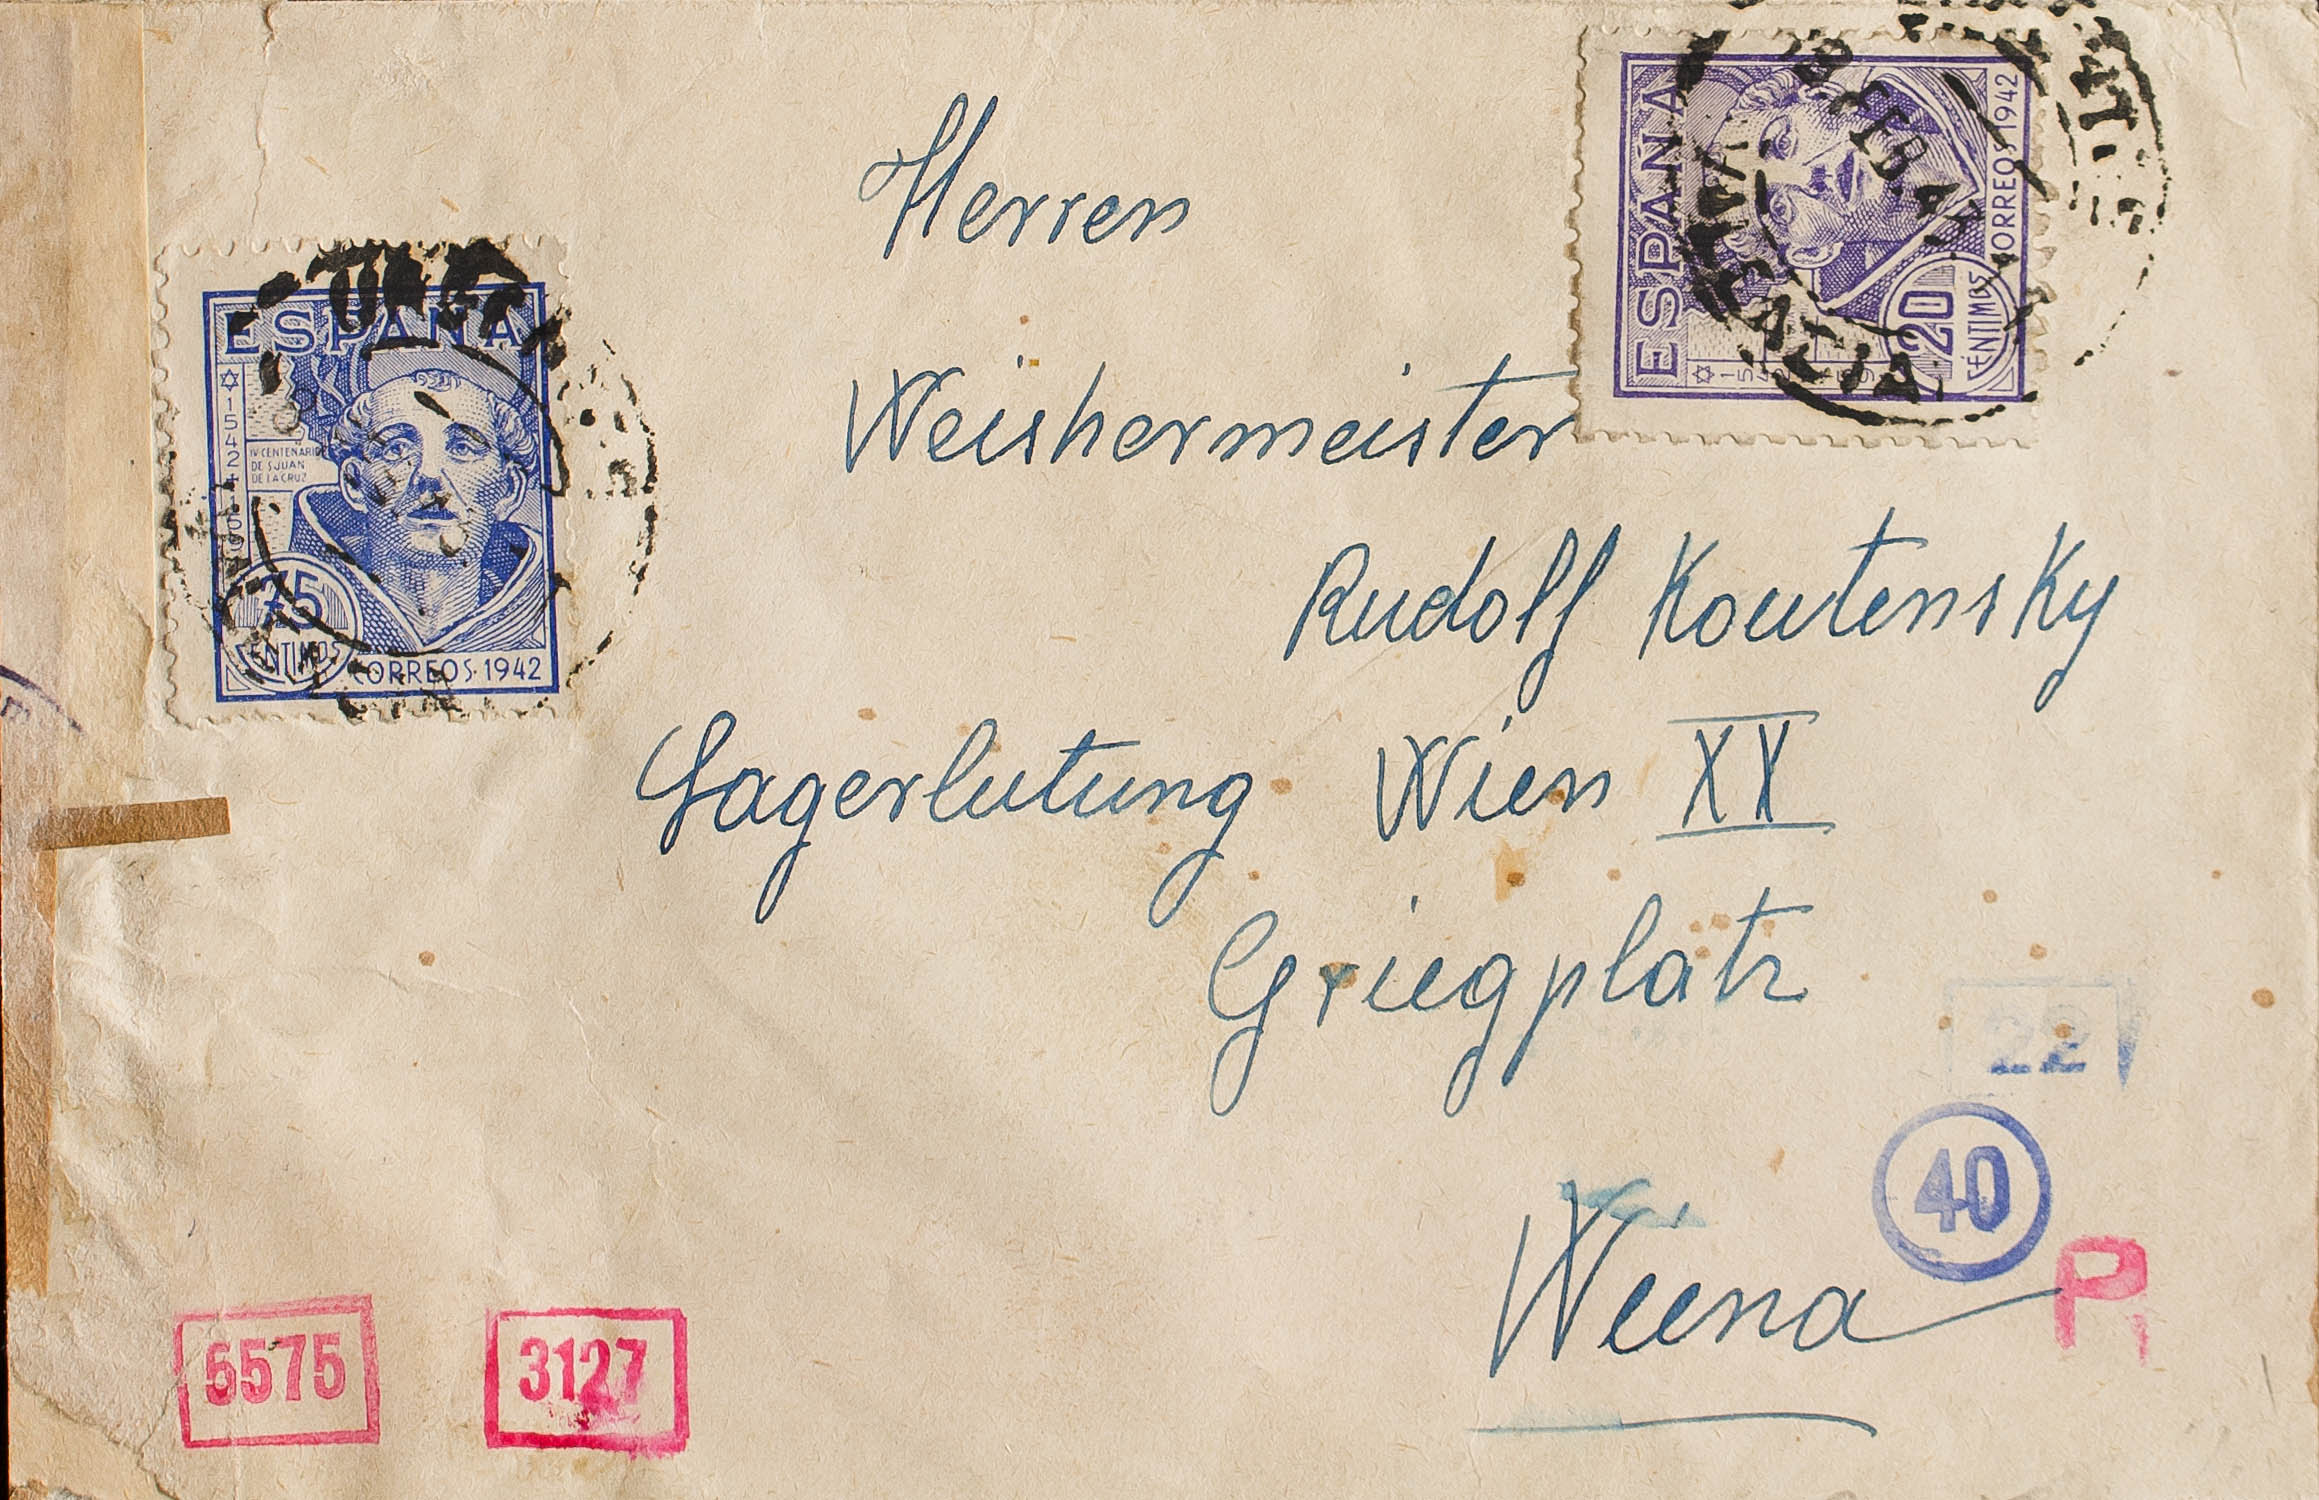 Herren
Weishermeister
Rudolf Koutensky
Lagerlutung Wien XX
Griegplatz
Wiena
ESPAÑA
1542
IV CENTENARIO
DE S JUAN
DE LA CRUZ
75
CENTIMOS
CORREOS·1942
ESPAÑA
1542
20
CENTIMOS
CORREOS 1942
VALENCIA
FEB
22
40
6575
3127